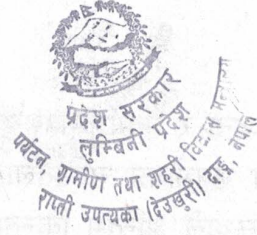 प्रदेश सरकार
लुम्बिनी प्रदेश
पर्यटन ग्रामीण तथा शहरी विकास मन्त्रालय
राप्ती उपत्यका (देउखुरी) दाङ, नेपाल